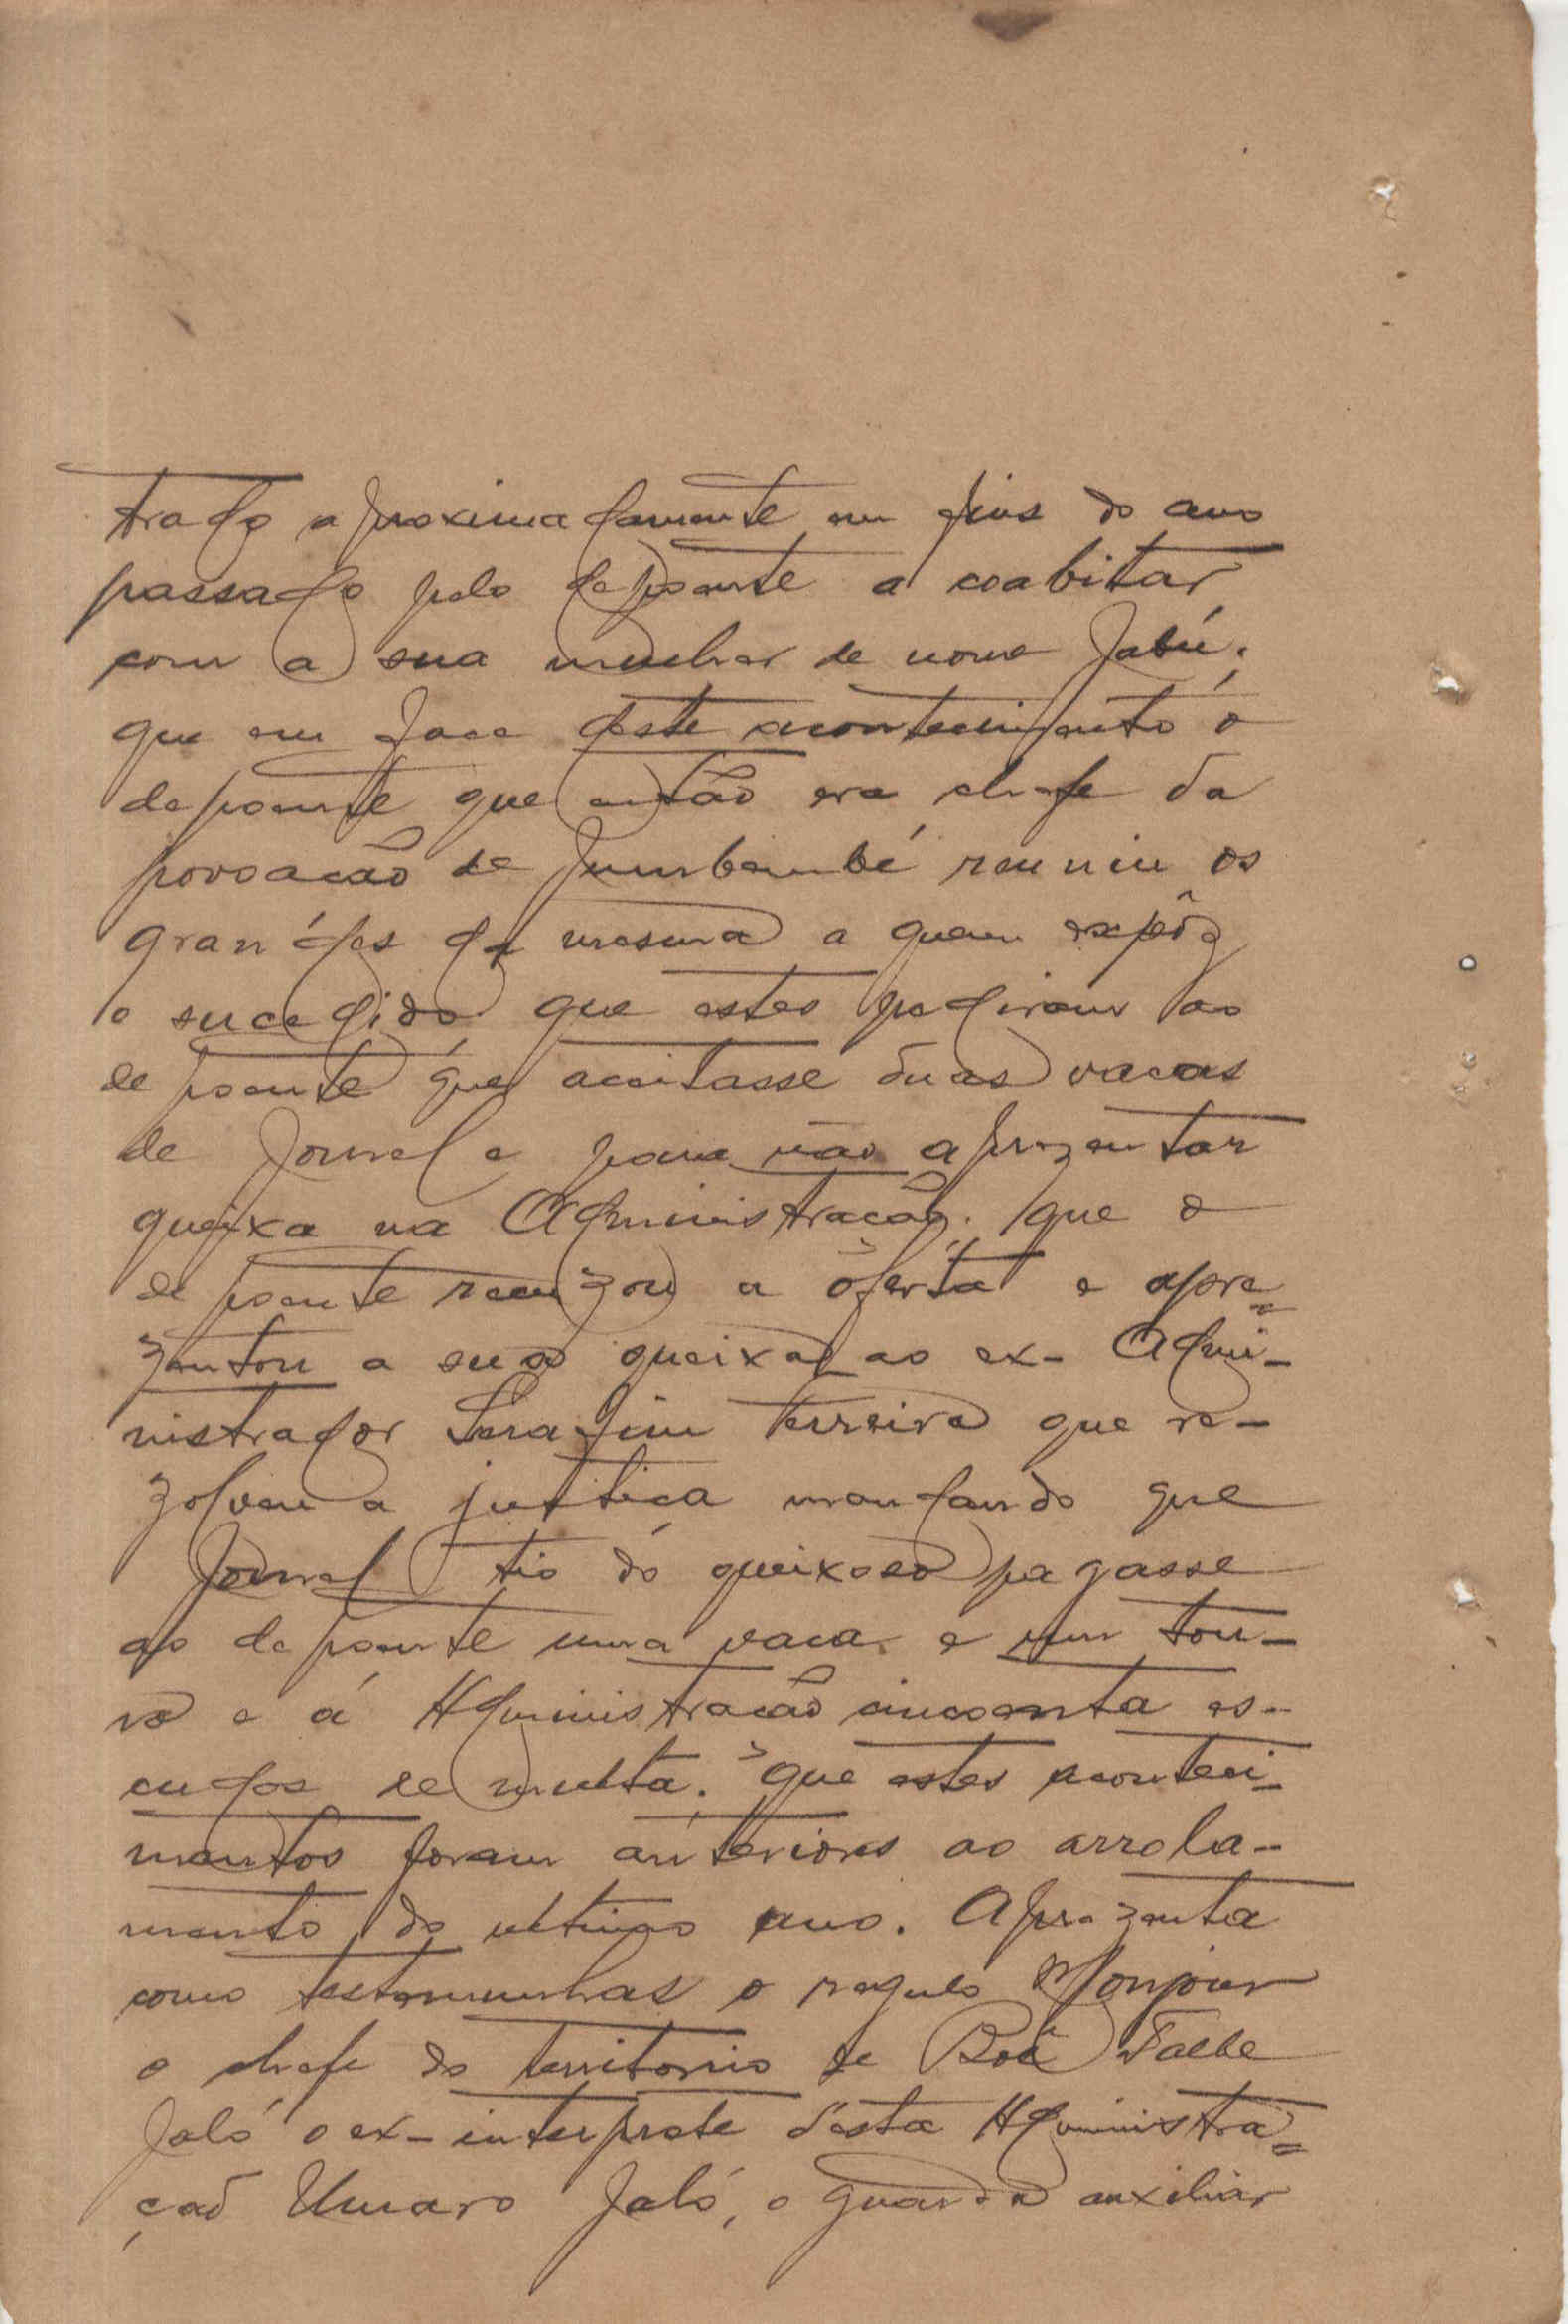 trado aproximadamente em fins do ano
passado pelo depoente a coabitar
com a sua mulher de nome Jabú;
que em face deste acontecimento o
depoente que então era chefe da
povoação de Jumbembé reuniu os
grandes da mesma a quem expôz
o sucedido que estes pediram ao
depoente que aceitasse duas vacas
de Jornel e para não aprezentar
queixa na Administração; que o
depoente recuzou a oferta e apre=
zentou a sua queixa ao ex-Admi-
nistrador Serafim Ferreira que re-
zolveu a justiça mandando que
Jornel tio do queixoso pagasse
ao depoente uma vaca e um tou-
ro e á Administração cincoenta es-
cudos de multa. Que estes aconteci-
mentos foram anteriores ao arrola-
mento do ultimo ano. Aprezenta
como testemunhas o regulo Monjour
o chefe do territorio de Boé
Jaló o ex-interprete desta Administra=
ção Umaro Jaló, o guarda auxiliar